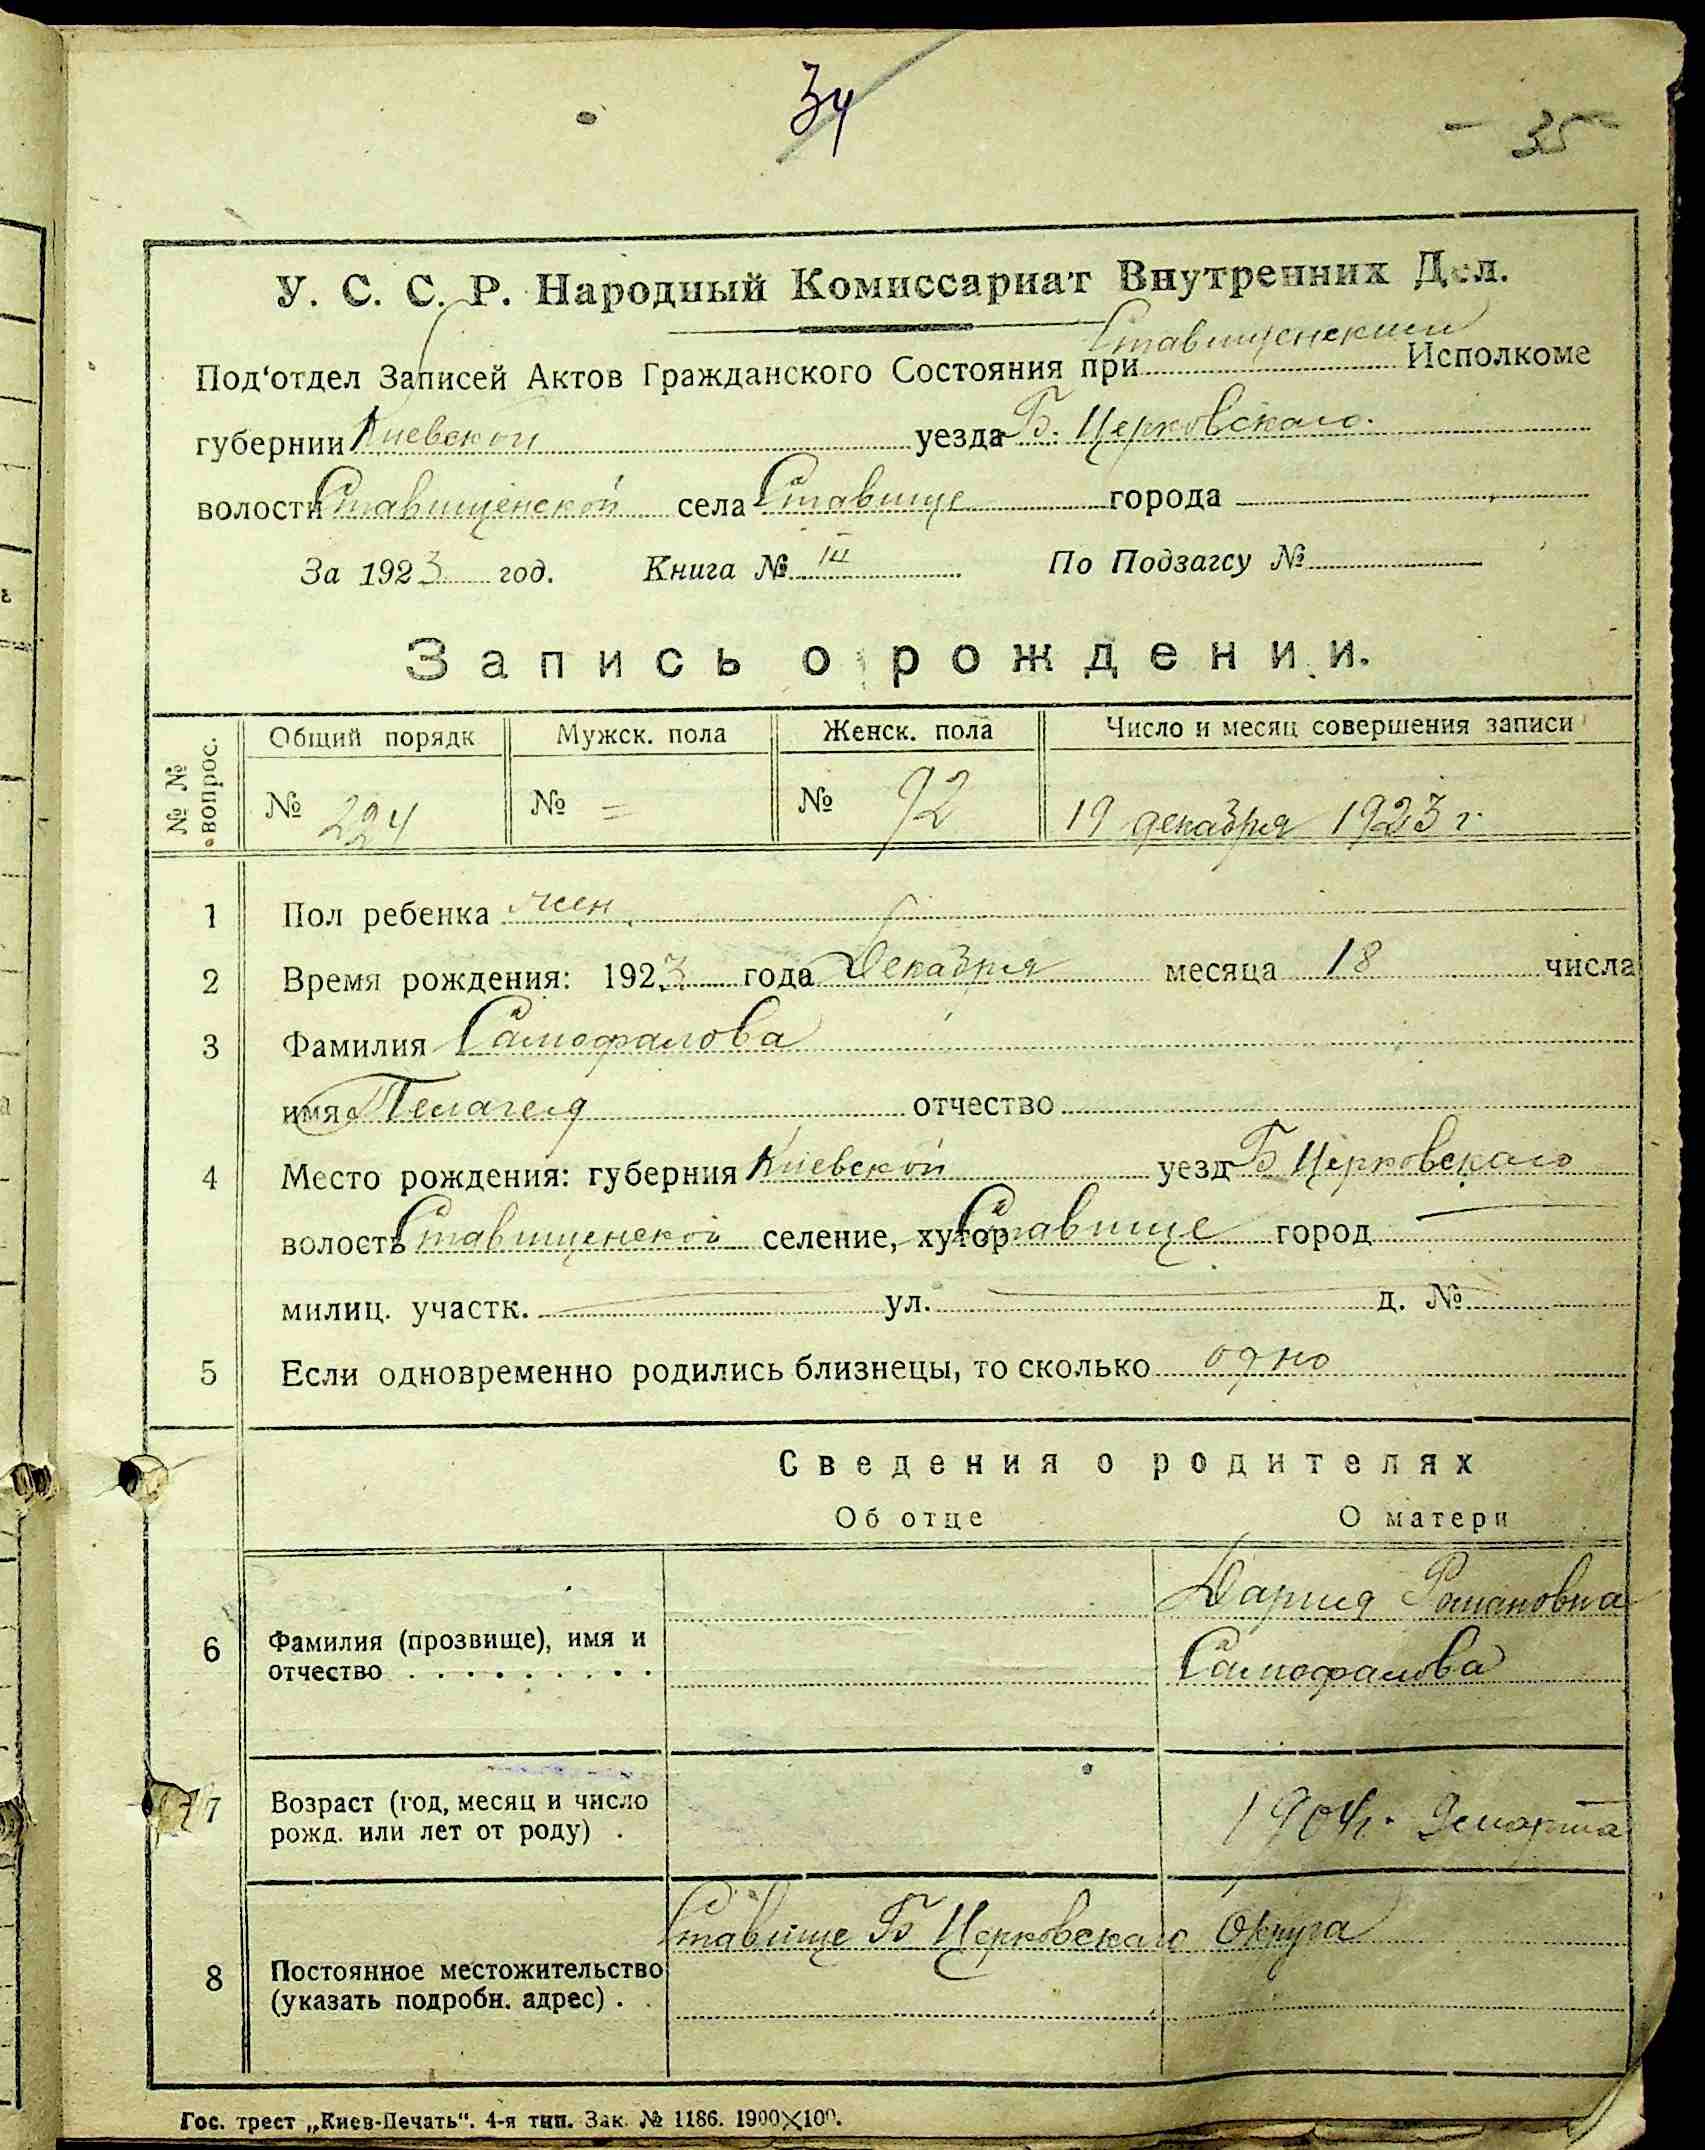 34
35
У. С. С. Р. Народный Комиссариат Внутренних Дел.
Под'отдел Записей Актов Гражданского Состояния при Ставищенским Исполкоме
губернии Киевской уезда Б. Церковскаго.
волости Ставищенской села Ставище города
За 1923 год. Книга № III По Подзагсу №
Запись о рождении.
№ № вопрос. Общий порядк Мужск. пола Женск. пола Число и месяц совершения записи
№ 224 № = № 92 19 декабря 1923 г.
1 Пол ребенка жен.
2 Время рождения: 1923 года Декабря месяца 18 числа
3 Фамилия Самофалова
имя Пелагея отчество
4 Место рождения: губерния Киевской уезд Б Церковскаго
волость Ставищенской селение, хутор Ставище город
милиц. участк. ул. д. №
5 Если одновременно родились близнецы, то сколько одно
Сведения о родителях
Об отце О матери
Дария Романовна
6 Фамилия (прозвище), имя и
отчество Самофалова
7 Возраст (год, месяц и число
рожд. или лет от роду) 1904 г. марта
Ставище Б Церковскаго Округа
8 Постоянное местожительство
(указать подробн. адрес)
Гос. трест „Киев-Печать“. 4-я тип. Зак. № 1186. 1900×100.